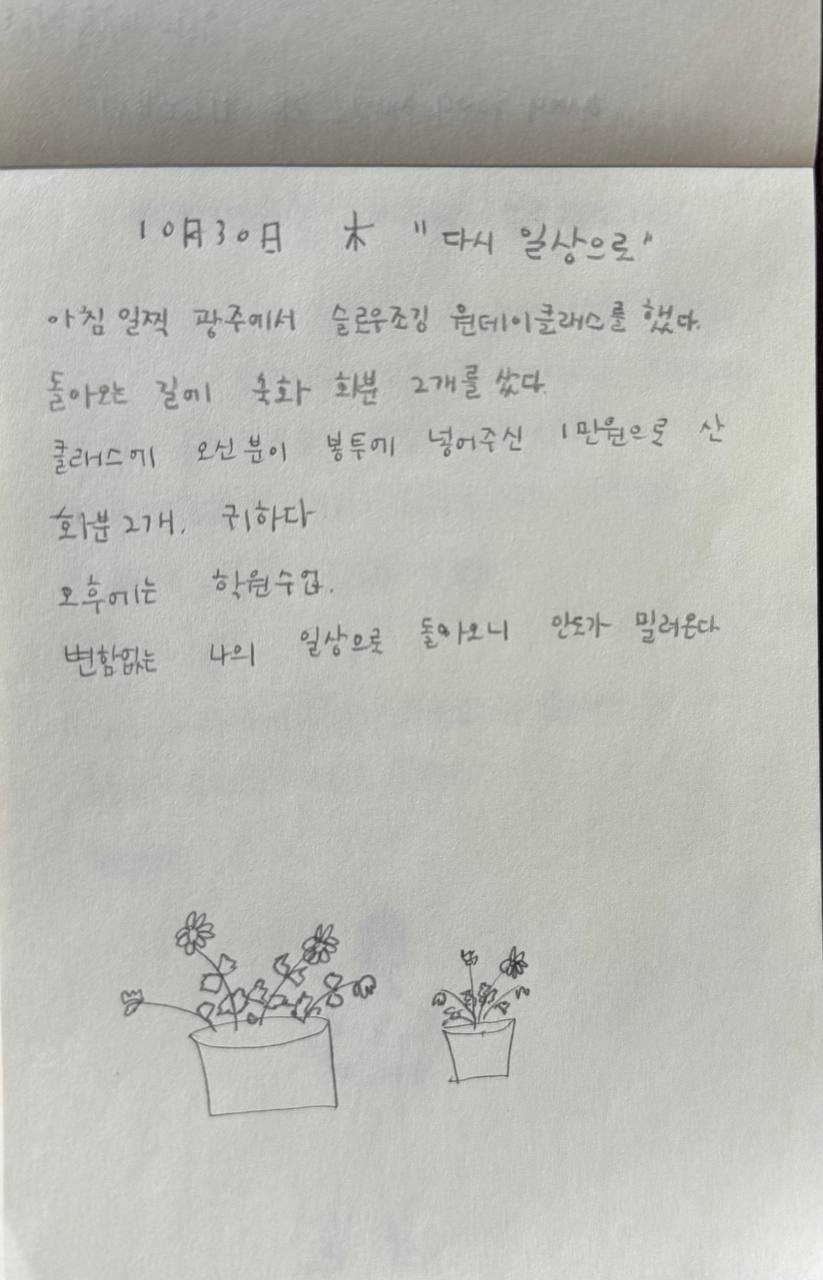 10月30日 木 "다시 일상으로"
아침 일찍 광주에서 슬로우조깅 원데이클래스를 했다.
돌아오는 길에 국화 화분 2개를 샀다.
클래스에 오신 분이 봉투에 넣어주신 1만원으로 산
화분 2개. 귀하다
오후에는 학원수업.
변함없는 나의 일상으로 돌아오니 안도가 밀려온다